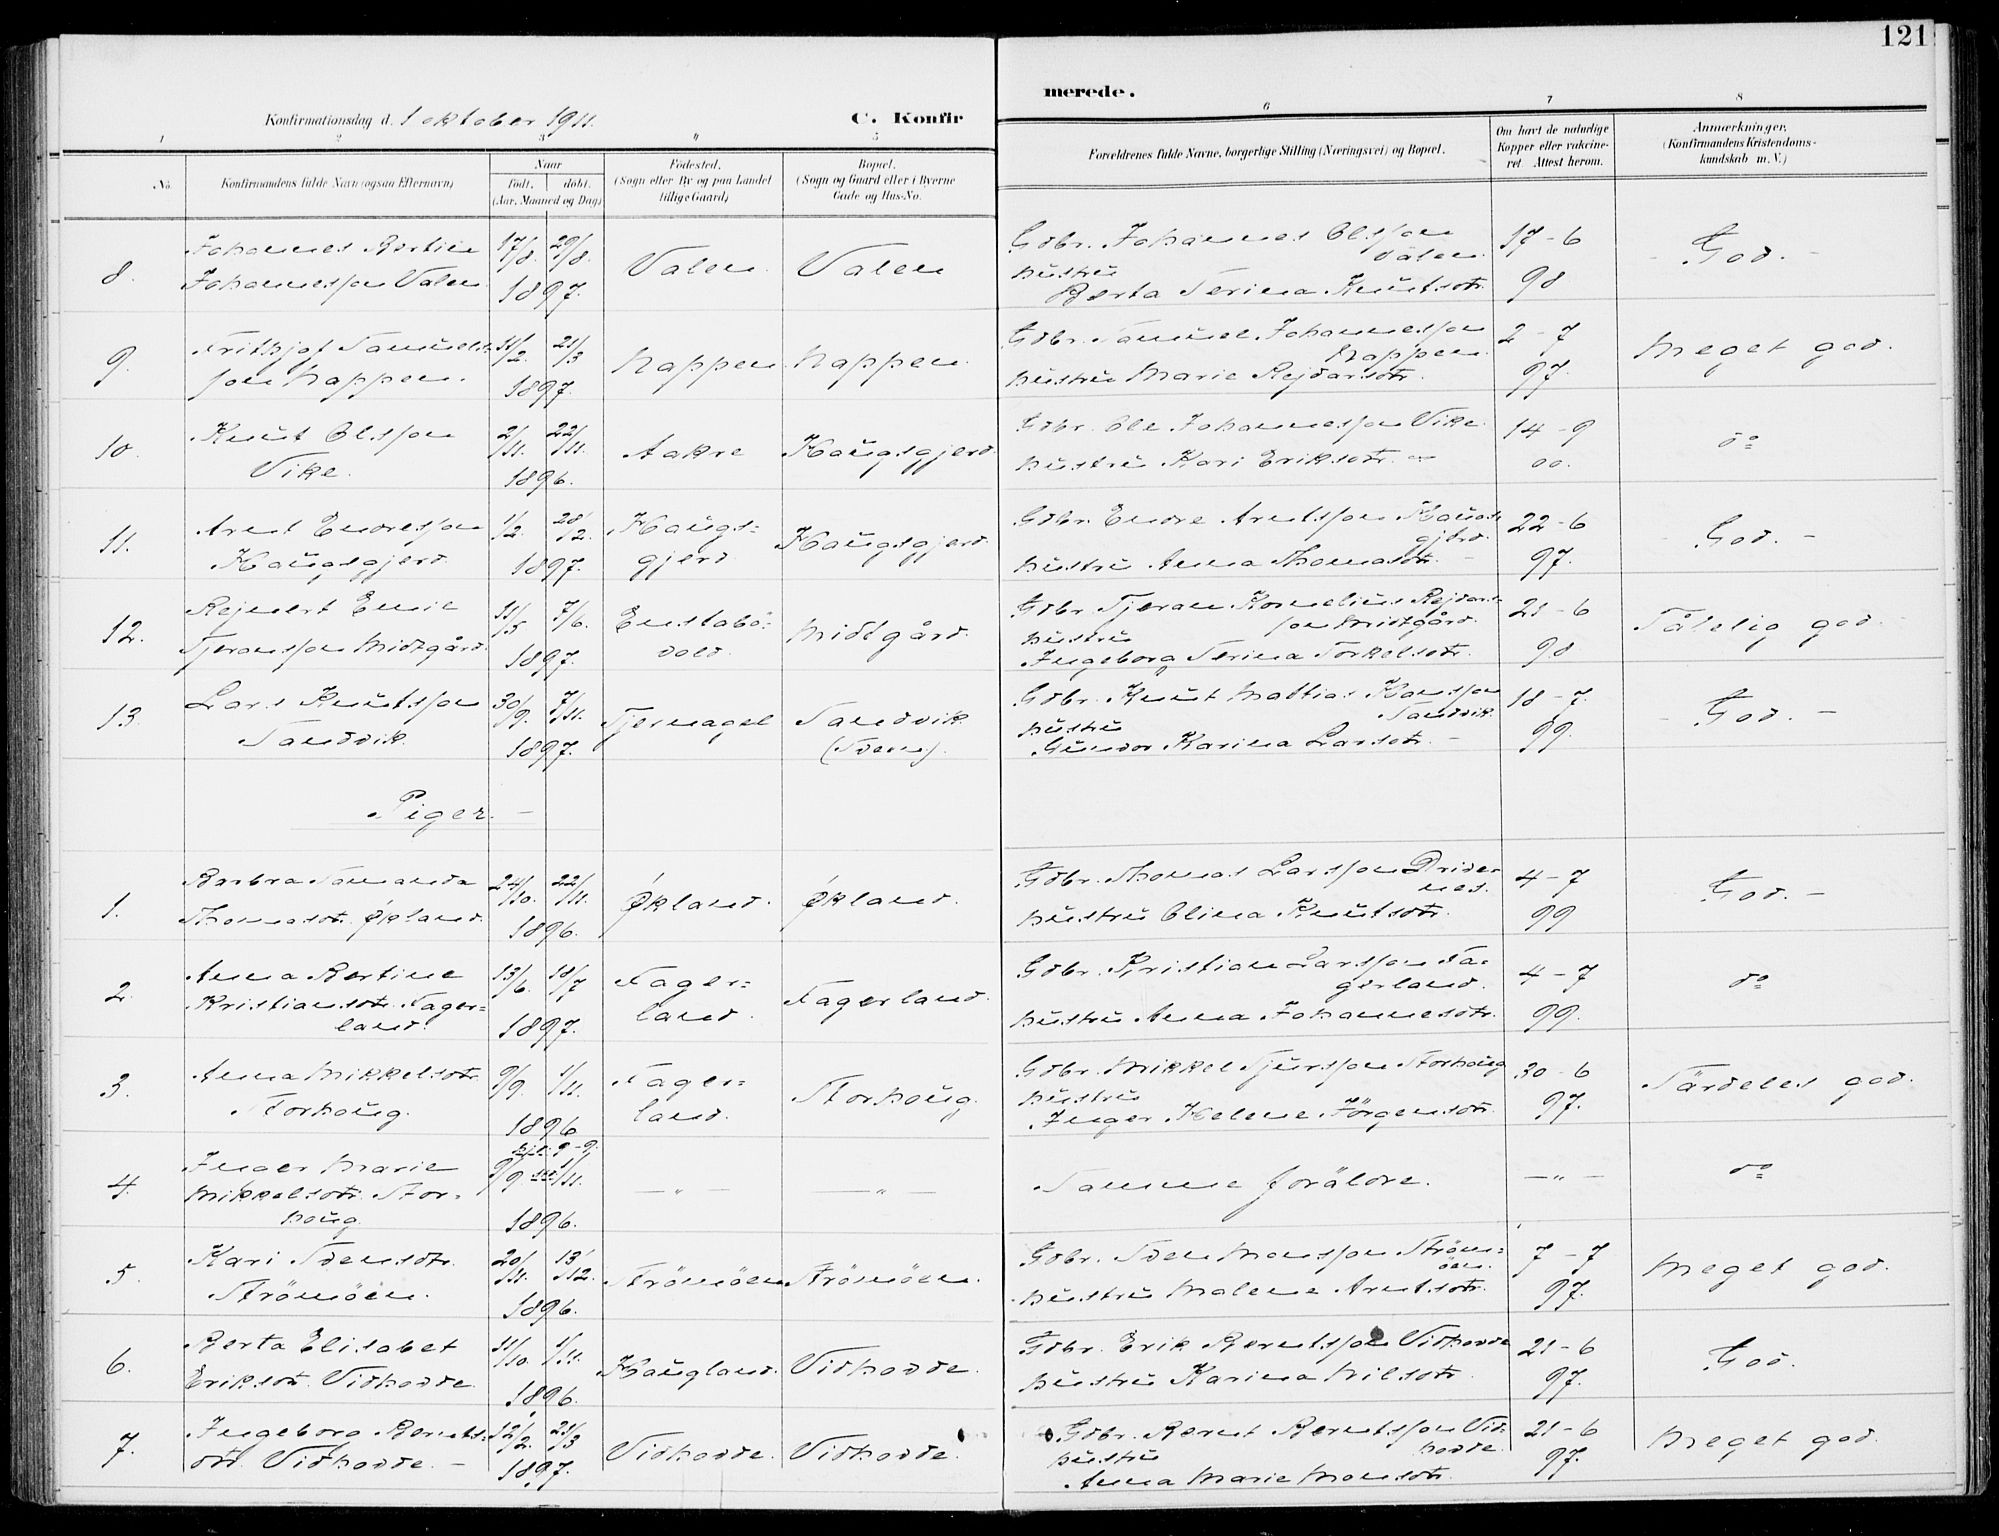 121
Konfirmationsdag d. 1 oktober 1911.
C. Konfirmerede.
1 2 3 4 5 6 7 8
No.
Konfirmandens fulde Navn (ogsaa Efternavn)
Naar
født. døbt.
(Aar, Maaned og Dag)
Fødested.
(Sogn eller By og paa Landet
tillige Gaard)
Bopæl.
(Sogn og Gaard eller i Byerne
Gade og Hus-No.
Forældrenes fulde Navne, borgerlige Stilling (Næringsvei) og Bopæl.
Om havt de naturlige
Kopper eller vakcine-
ret. Attest herom.
Anmærkninger.
(Konfirmandens Kristendoms-
kundskab m. V.)
8. Johannes Bertin
Johannesson Valen
17/8. 29/8.
1897.
Valen. Valen
Gdbr. Johannes Olsson
Valen.
hustru
Berta Serina Knutsdtr.
17-6
98
God.
9. Frithjof Samuels-
son Nappen.
11/2. 21/3
1897.
Nappen. Nappen.
Gdbr. Samuel Johannesson
Nappen.
hustru Marie Rejdarsdtr.
2-7
97.
Meget god.
10. Knut Olsson
Vike.
2/11. 22/11.
1896.
Aakre Haugsgjerd.
Gdbr. Ole Johannesson Vike.
hustru Kari Eriksdtr.
14-9
00.
do
11. Arnt Endresson
Haugsgjerd
1/2. 28/2.
1897.
Haugs=
gjerd. Haugsgjerd.
Gdbr. Endre Arntsson Haugs
gjerd.
hustru Anna Thomasdtr.
22-6
97.
God.
12. Rejnert Emie
Tjeransson Midtgård.
11/5 7/6.
1897.
Enstabö-
vold. Midtgård.
Gdbr. Tjeran Kornelius Rejdars-
son Midtgård.
hustru
Ingeborg Serina Torkelsdtr.
21-6
98
Tålelig god.
13. Lars Knutsson
Sandvik.
30/9. 7/11.
1897.
Tjernagel Sandvik
(Sveen).
Gdbr. Knut Mattias Hansson
Sandvik.
hustru
Gundor Karina Larsdtr.
18-7.
99.
God.
Piger.
1. Barbra Samanda
Thomasdtr. Økland.
24/10. 22/11.
1896.
Økland. Økland.
Gdbr. Thomas Larsson Dride-
nes.
hustru Olina Knutsdtr.
4-7
99
God.
2. Anna Bertine
Kristiansdtr. Fager=
land.
13/6. 18/7
1897.
Fager=
land. Fagerland.
Gdbr. Kristian Larsson Fa-
gerland.
hustru Anna Johannesdtr.
4-7
99.
do
3. Anna Mikkelsdtr.
Storhoug.
9/9. 1/11.
1896
Fager=
land. Storhoug
Gdbr. Mikkel Sjursson Storhoug
hustru
Inger Helene Jörgensdtr.
30-6
97.
Särdeles god.
4. Inger Marie
Mikkelsdtr. Stor-
houg.
9/9. 1/11.
1896.
— " — — " —
Samme foräldre.
— " —
do
5. Kari Svensdtr.
Strömöen.
20/11. 13/12.
1896.
Strömöen Strömöen.
Gdbr. Sven Monsson Ström=
öen.
hustru Malene Arntsdtr.
7-7
97.
Meget god.
6. Berta Elisabet
Eriksdtr. Vidhovde.
11/10. 1/11.
1896.
Haugland. Vidhovde.
Gdbr. Erik Berntsson Vidhovde
hustru Karina Nilsdtr.
21-6
97.
God.
7. Ingeborg Bernts=
dtr. Vidhovde.
12/2. 21/3
1897.
Vidhovde. Vidhovde.
Gdbr. Bernt Berntsson Vid-
hovde.
hustru
Anna Marie Monsdtr.
21-6
97.
Meget god.